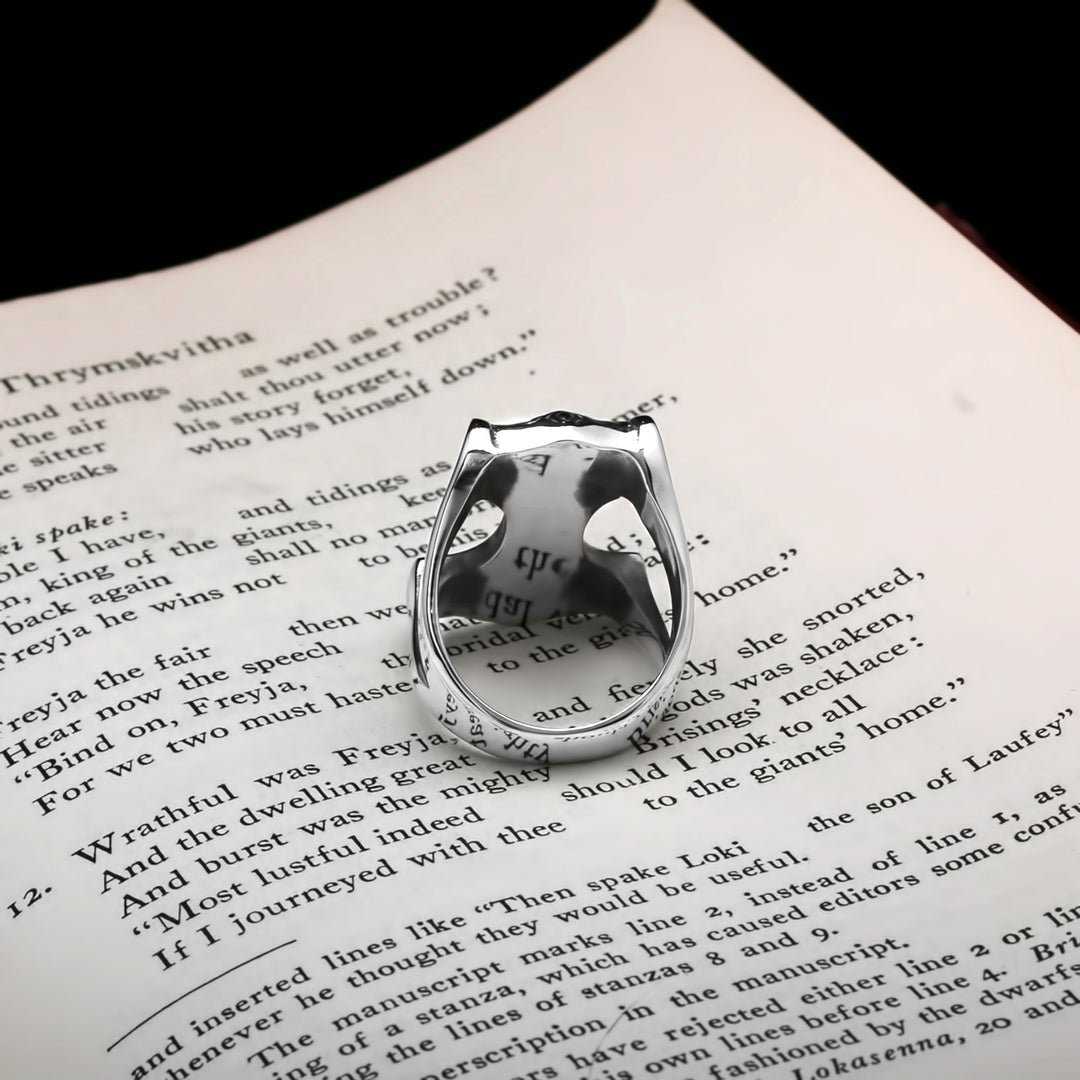 Thrymskvitha
ound tidings as well as trouble?
the air shalt thou utter now;
e sitter his story forget,
e speaks who lays himself down.”
ki spake:
ble I have, and tidings as
m, king of the giants, kee mer,
back again shall no man
Freyja he wins not to be his
Freyja the fair then we d;
Hear now the speech th
“Bind on, Freyja, bridal
For we two must haste to the gia home.”
12. Wrathful was Freyja, and fiercely she snorted,
And the dwelling great gods was shaken,
And burst was the mighty Brisings’ necklace:
“Most lustful indeed should I look to all
If I journeyed with thee to the giants’ home.”
and inserted lines like “Then spake Loki the son of Laufey”
henever he thought they would be useful.
The manuscript marks line 2, instead of line 1, as
ing of a stanza, which has caused editors some confu
the lines of stanzas 8 and 9.
perscription in the manuscript.
ors have rejected either line 2 or lin
his own lines before line 4. Bri
fashioned by the dwarfs
Lokasenna, 20 and